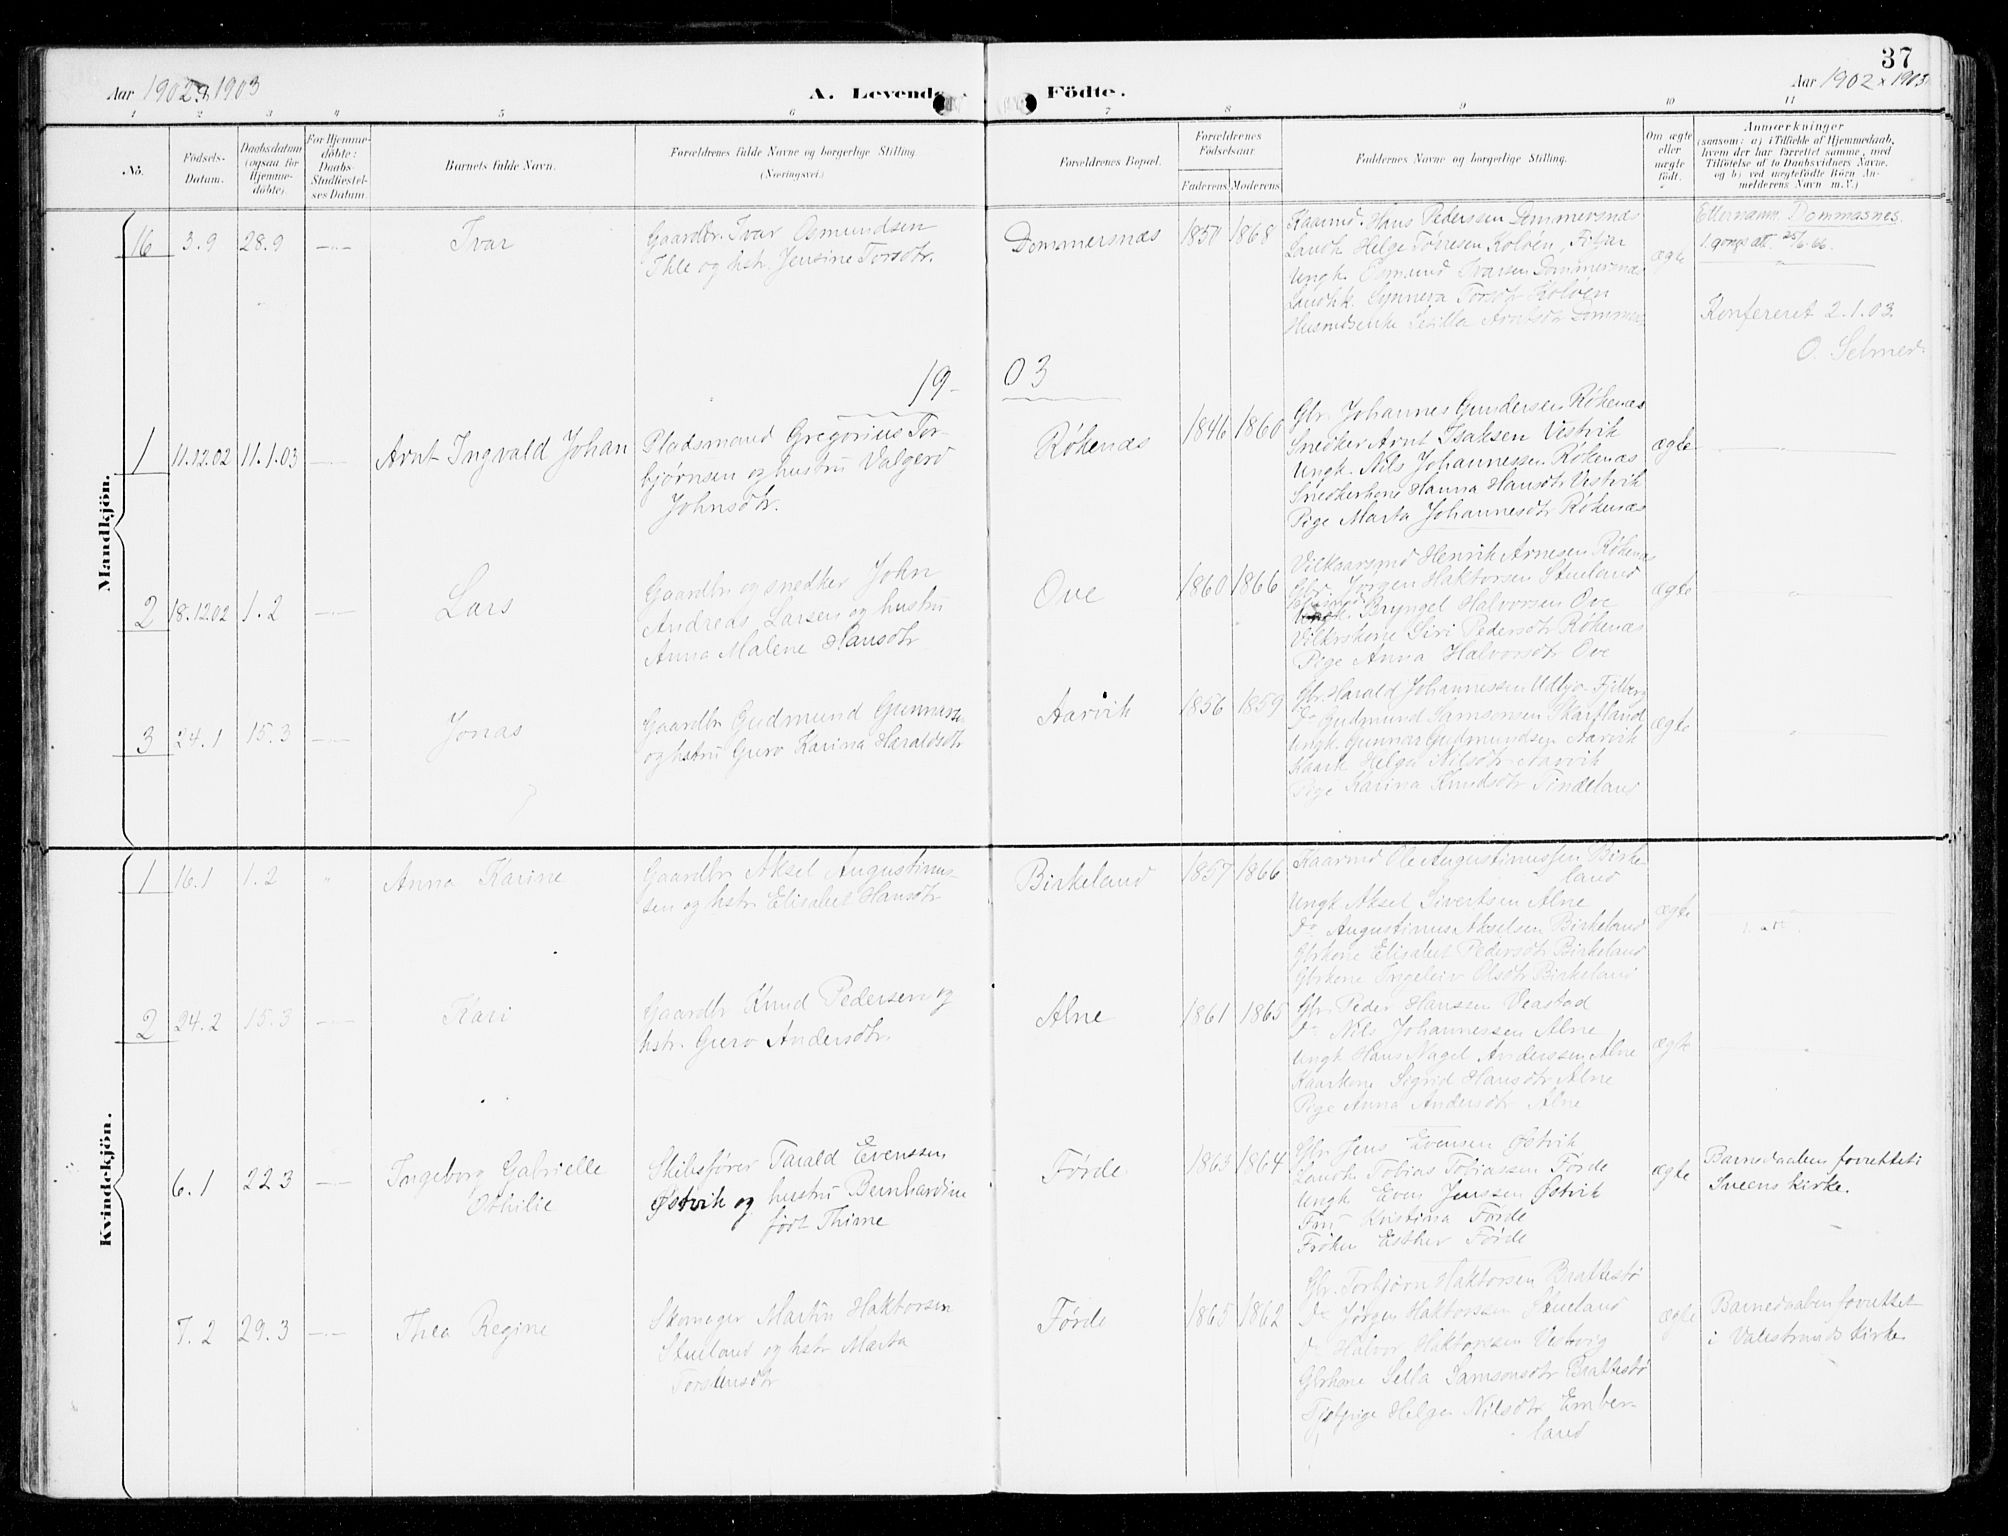 37
Aar 1902 & 1903
A. Levende Födte.
Aar 1902 & 1903
1 2 3 4 5 6 7 8 9 10 11
No.
Födsels-Datum.
Daabsdatum (ogsaa for Hjemmedöbte).
For Hjemmedöbte: Daabs-Stadfæstelses Datum
Barnets fulde Navn.
Forældrenes fulde Navne og borgerlige Stilling
(Næringsvei.)
Forældrenes Bopæl.
Forældrenes Födselsaar.
Faderens Moderens
Faddernes Navne og borgerlige Stilling.
Om ægte eller uægte født.
Anmærkninger
(saasom: a) i Tilfælde af Hjemmedaab,
hvem der har forrettet samme, med
Tilföielse af to Daabsvidners Navne,
og b) ved uægtefödte Börn An-
melderens Navn m.V.)
Mandkjön.
16 3.9 28.9 Ivar
Gaardbr. Ivar Osmundsen
Ihle og hstr. Jensine Torsdtr.
Dommersnæs 1850 1868
Kaarmd. Hans Pederssen Dommersnæs
Landh. Helge Tönnesen Kolvén, Fitjar
Ungk. Osmund Ivarsen Dommersnæs
Landhk. Synneva Torsdtr Kolvén
Husmdsenke Sesilla Arntsdtr Dommers
ægte
Etternavn Dommasnes
1. gangs att. 25/6-66.
Konfereret 2.1.03.
O. Selmer.
19-03
1 11.12.02 11.1.03 Arnt Ingvald Johan
Pladsmand Gregorius Tor-
bjørnsen og hustru Valgerd
Johnsdtr.
Røkenæs 1846 1860
Gbr. Johannes Gundersen Røkenæs
Snedker Arnt Isaksen Vestvik
Ungk. Nils Johannessen Røkenæs
Snedkerkone Hanna Hansdtr Vestvik
Pige Marta Johannesdtr Røkenæs
ægte
2 18.12.02 1.2 Lars
Gaardbr og snedker John
Andreas Larsen og hustru
Anna Malene Hansdtr
Ove 1860 1866
Vilkaarsmd Henrik Arnesen Røkenæs
Gbr. Jørgen Haktorsen Stueland
Bryngel Halvorsen Ove
Vilkrskone Siri Pedersdtr Røkenæs
Pige Anna Halvorsdtr Ove
ægte
3 24.1 15.3 Jonas
Gaardbr Gudmund Gunnarsen
og hstru Guro Karina Haraldsdtr
Aarvik 1856 1859
Gbr. Harald Johannessen Udbjo Fjelberg
Do Gudmund Samsonsen Skartland
Ungk. Gunnar Gudmundsen Aarvik
Kaark Helga Nilsdtr Aarvik
Pige Karina Knudsdtr Tindeland
ægte
Kvindekjön.
1 16.1 1.2 Anna Karine
Gaardbr Aksel Augustinus-
sen og hstr Elisabet Hansdtr
Birkeland 1857 1866
Kaarmd Ole Augustinussen Birke
land
Ungk Aksel Sivertsen Alne
Do Augustinus Akselsen Birkeland
Gbrkone Elisabet Pedersdtr Birkeland
Gbrkone Ingeleiv Olsdtr Birkeland
ægte
2 24.2 15.3 Kari
Gaardbr Knud Pedersen og
hstr. Guro Andersdtr.
Alne 1861 1865
Gbr Peder Hanssen Veastad
Do Nils Johannessen Alne
Ungk Hans Nagel Anderssen Alne
Kaarkone Sigrid Hansdtr Alne
Pige Anna Andersdtr Alne
ægte
6.1 22.3 Ingeborg Gabrielle
Othilie
Skibsfører Tarald Evenssen
Østvik og hustru Bernhardine
født Thime
Førde 1863 1864
Gbr Jens Evensen Østvik
Landh Tobias Tobiassen Førde
Ungk Even Jenssen Østvik
Fru Kristina Førde
Frøken Esther Førde
ægte
Barnedaaben forrettet i
Sveens kirke.
7.2 29.3 Thea Regine
Skomager Martin Haktorsen
Stueland og hstr Marta
Torstensdtr
Førde 1865 1862
Gbr Torbjørn Haktorsen Brattestø
Do Jørgen Haktorssen Stueland
Do Halvor Haktorssen Vestvig
Gbrkone Sella Samsonsdtr Brattestø
Tj.pige Helga Nilsdtr Ember-
land
ægte
Barnedaaben forrettet
i Valestrands kirke